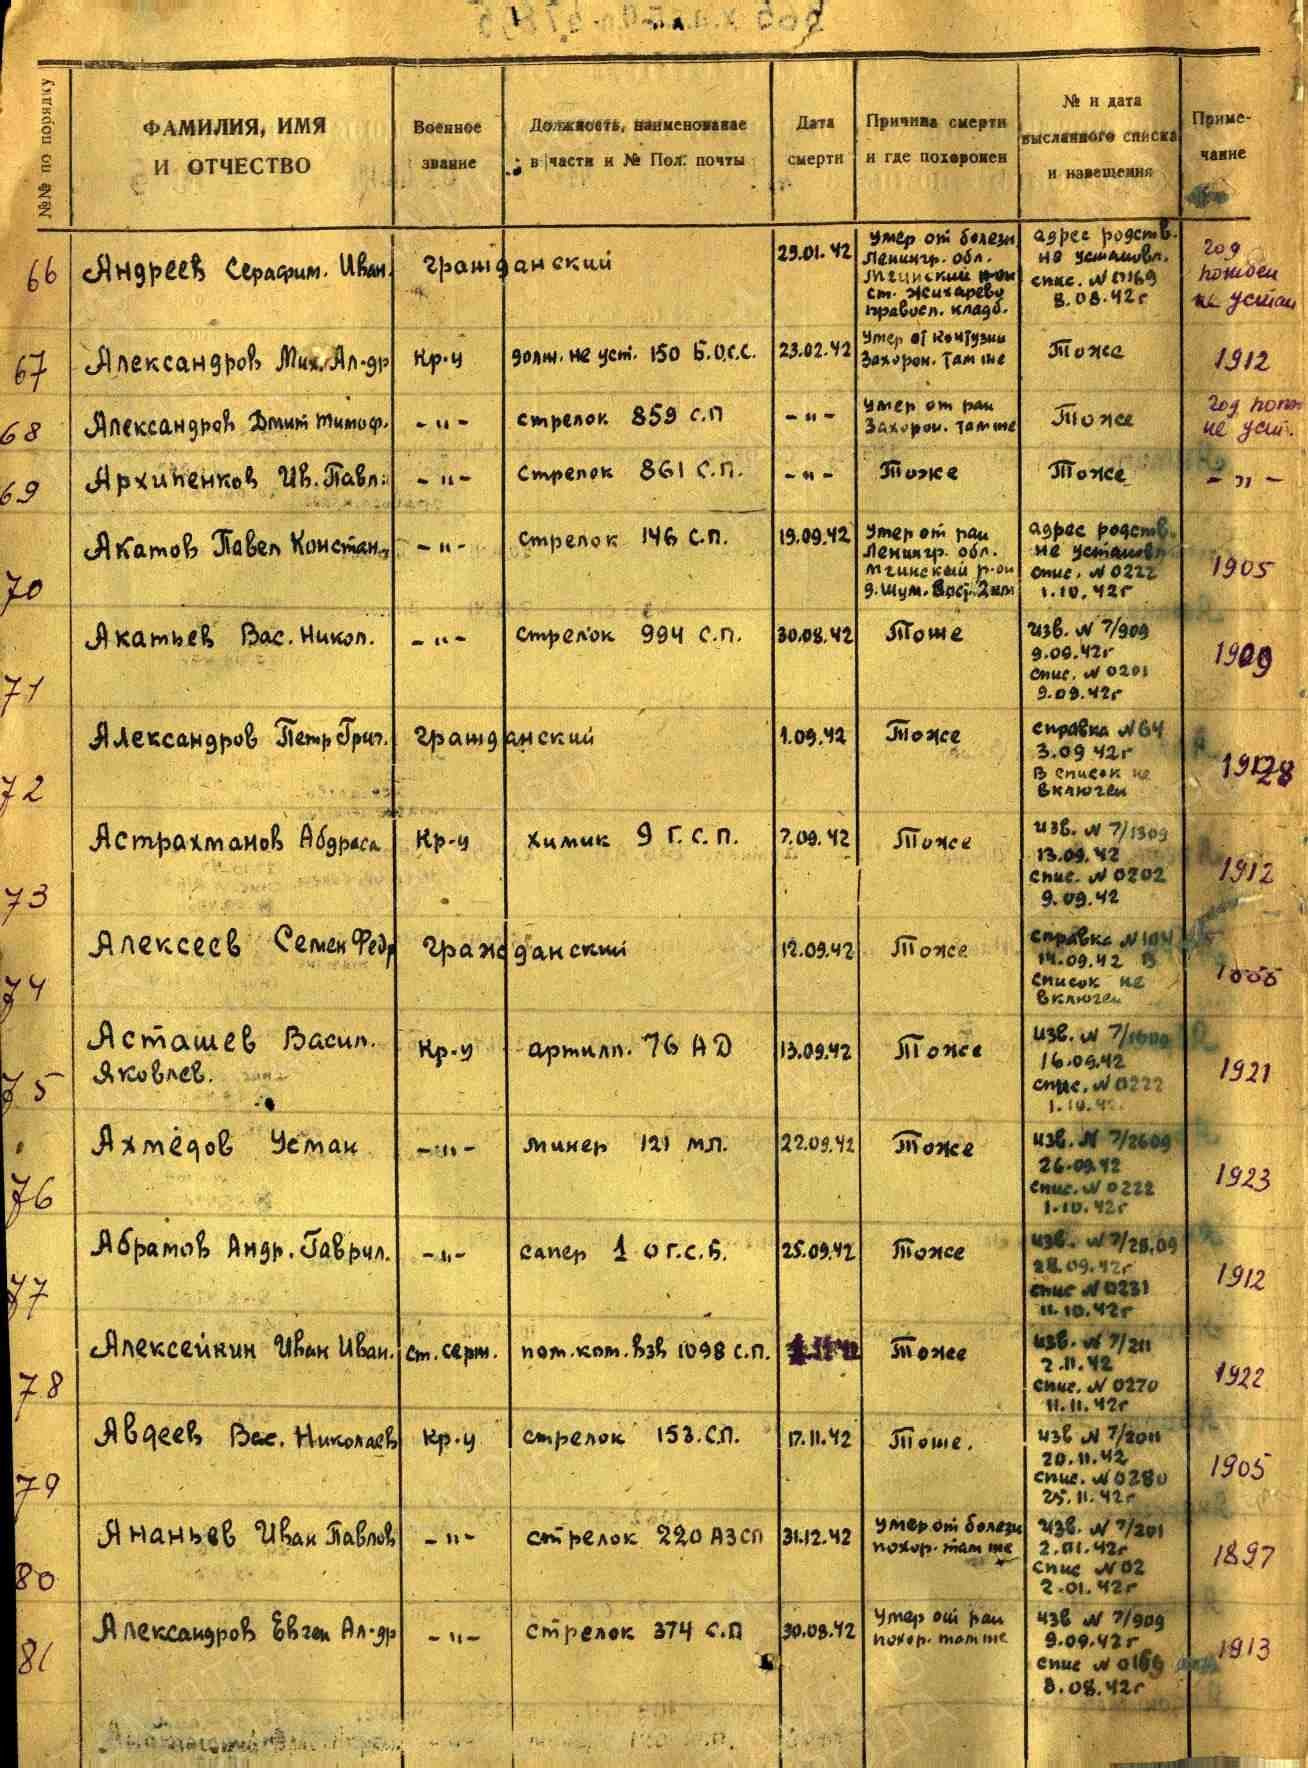 №№ по порядку
ФАМИЛИЯ, ИМЯ
И ОТЧЕСТВО
Военное
звание
Должность, наименование
в части и № Пол. почты
Дата
смерти
Причина смерти
и где похоронен
№ и дата
высланного списка
и извещения
Приме-
чание
66 Андреев Серафим. Иван. гражданский 29.01.42
умер от болезн
Ленингр. обл.
Мгинский р-он
ст. Жихарево
правосл. кладб.
адрес родств.
не установл.
спис. N 0169
8.08.42г
год
рожден
не устан
67 Александров Мих. Ал-др Кр-ц долж. не уст. 150 Б.О.С.С. 23.02.42
Умер от контузии
Захорон. там же
Тоже
1912
68 Александров Дмит Тимоф. -"- стрелок 859 с.п -"-
умер от ран
Захорон. там же
Тоже
год
не уст.
69 Архипенков Ив. Павл. -"- стрелок 861 с.п. -"- Тоже Тоже -"-
70 Акатов Павел Констан. -"- стрелок 146 с.п. 19.09.42
Умер от ран
Ленингр. обл.
Мгинский р-он
д. Шум. Вост. 2 км
адрес родств.
не установл
спис. N 0222
1.10.42г
1905
71 Акатьев Вас. Никол. -"- стрелок 994 с.п. 30.08.42 Тоже
изв. N 7/909
9.09.42г
спис. N 0201
9.09.42г
1909
72 Александров Петр Григ. гражданский 1.09.42 Тоже
справка N 64
3.09 42г
В список не
включен
73 Астрахманов Абдраса Кр-ц химик 9 г.с.п. 7.09.42 Тоже
изв. N 7/1309
13.09.42
спис. N 0202
9.09.42
1912
74 Алексеев Семен Федр гражданский 12.09.42 Тоже
справка N 104
14.09.42 В
список не
включен
75 Асташев Васил.
Яковлев.
Кр-ц артилл. 76 АД 13.09.42 Тоже
изв. N 7/1609
16.09.42
спис. N 0222
1.10.42.
1921
76 Ахмедов Усман -"- минер 121 мп. 22.09.42 Тоже
изв. N 7/2609
26.09.42
спис. N 0222
1.10.42г
1923
77 Абрамов Андр. Гаврил. -"- сапер 1 о г.с.б. 25.09.42 Тоже
изв. N 7/28.09
28.09.42г
спис N 0231
11.10.42г
1912
78 Алексейкин Иван Иван. ст. серж. пом. ком. взв 1098 с.п. Тоже
изв. N 7/211
2.11.42
спис. N 0270
11.11.42г
1922
79 Авдеев Вас. Николаев Кр-ц стрелок 153. с.п. 17.11.42 Тоже.
изв N 7/2011
20.11.42
спис. N 0280
25.11.42г
1905
80 Ананьев Иван Павлов -"- стрелок 220 АЗСП 31.12.42
умер от болезн
похор. там же
изв. N 7/201
2.01.42г
спис N 02
2.01.42г
1897
81 Александров Евген Ал-др -"- стрелок 374 с.п 30.08.42
Умер от ран
похор. там же
изв N 7/909
9.09.42г
спис N 0169
8.08.42г
1913